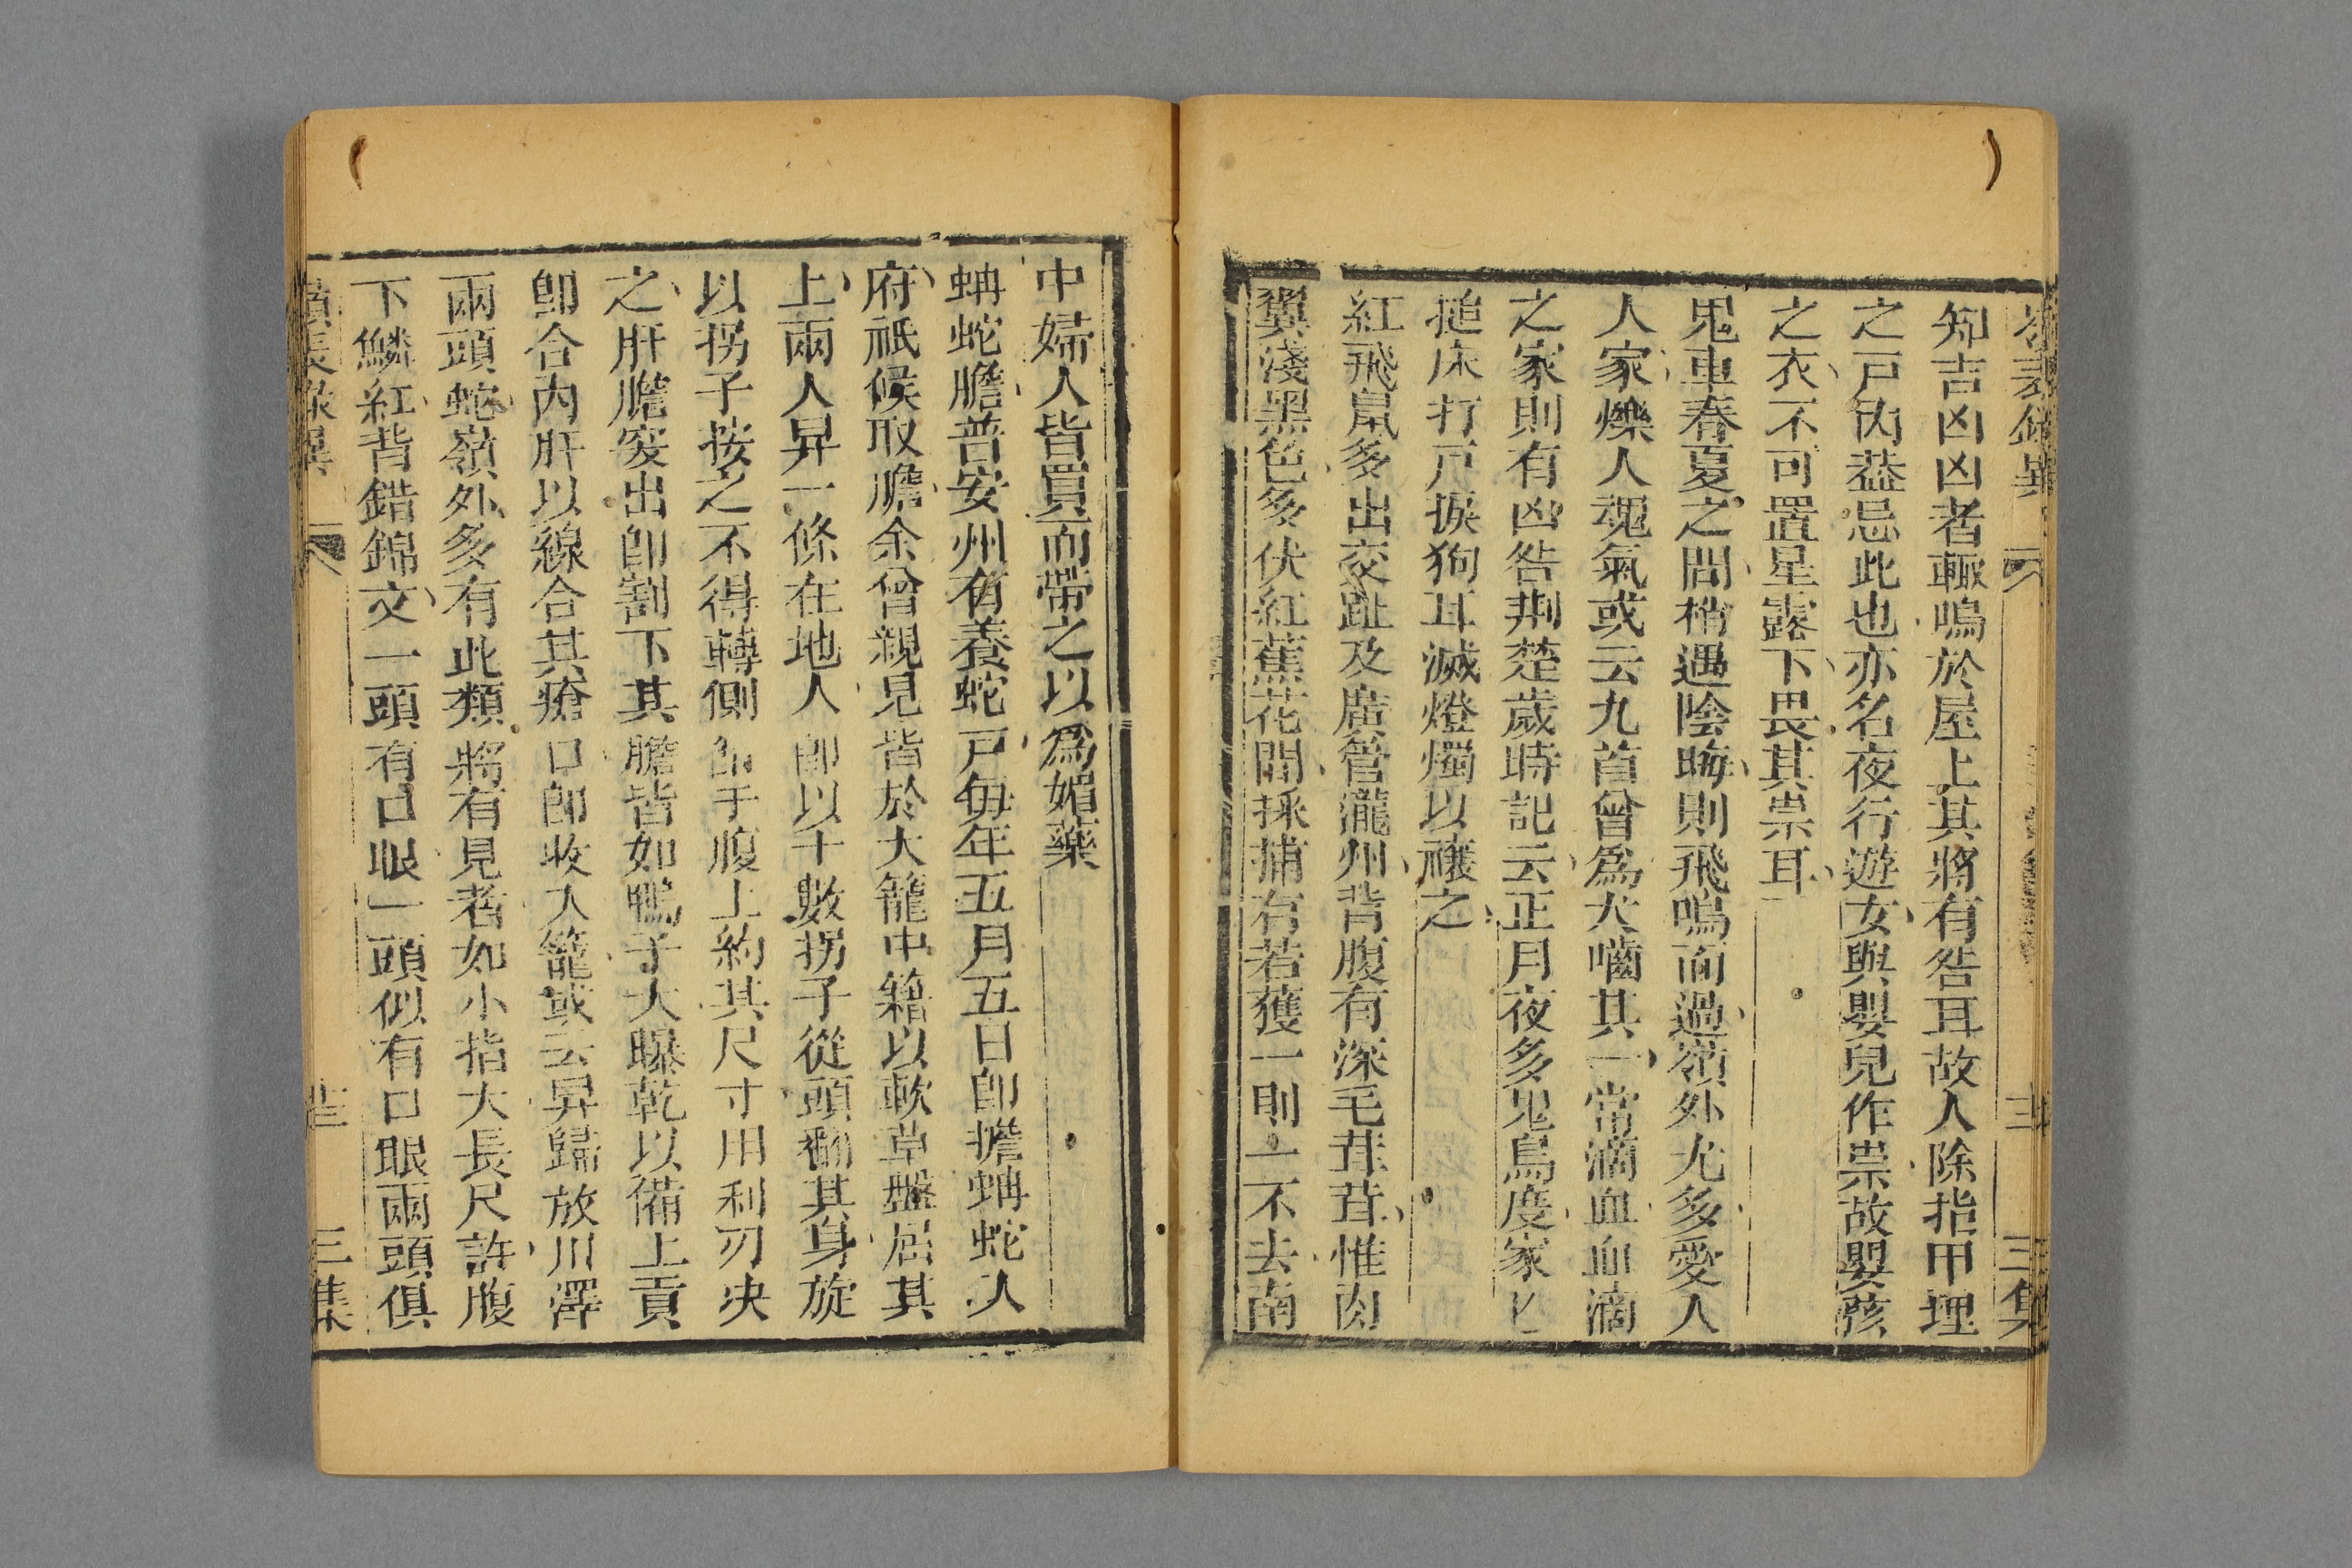 知吉凶凶者輒鳴於屋上其將有咎耳故人除指甲埋
之戸內葢忌此也亦名夜行遊女與嬰兒作祟故嬰孩
之衣不可置星露下畏其祟耳
鬼車春夏之間稍遇陰晦則飛鳴而過嶺外尤多愛人
人家爍人魂氣或云九首曾爲犬嚙其一常滴血血滴
之家則有凶咎荆楚歲時記云正月夜多鬼鳥度家
搥床打戸捩狗耳滅燈燭以禳之
紅飛鼠多出交趾及廣管瀧州背腹有深毛茸茸惟肉
翼淺黑色多伏紅蕉花間採捕有若獲一則一不去南
三集
中婦人皆買而帶之以爲媚藥
蚺蛇膽普安州有養蛇戸每年五月五日卽擔蚺蛇入
府祇候取膽余曾親見皆於大籠中籍以軟草盤屈其
上兩人舁一條在地人卽以十數拐子從頭翻其身旋
以拐子按之不得轉側卽于腹上約其尺寸用利刃决
之肝膽突出卽割下其膽皆如鴨子大曝乾以備上貢
卽合內肝以線合其瘡口卽收入籠或云舁歸放川澤
兩頭蛇嶺外多有此類將有見者如小指大長尺許腹
下鱗紅背錯錦文一頭有口眼一頭似有口眼兩頭俱
三集